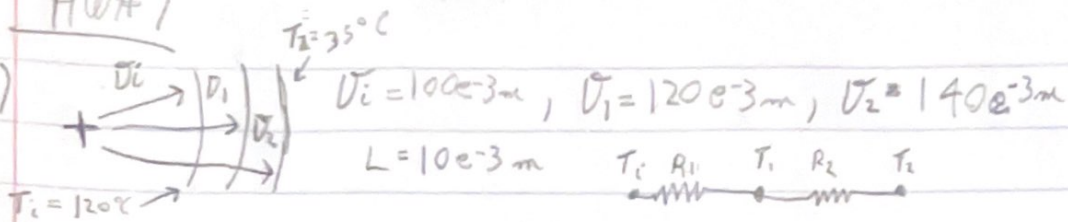 HW# 1
T₂=35°C
) r̄i r̄₁ r̄₂ r̄i = 100e-3m , r̄₁ = 120e-3m , r̄₂ = 140e-3m
L = 10e-3 m Ti R₁ T₁ R₂ T₂
Ti = 120℃